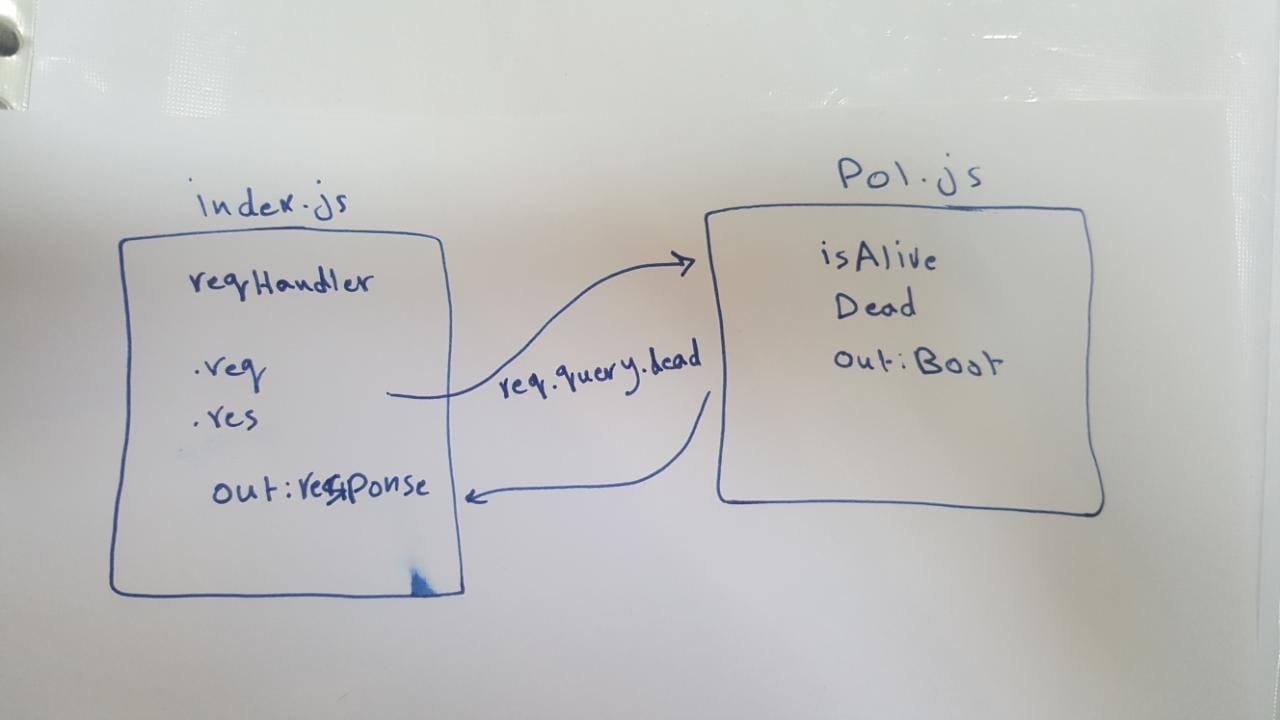 index.js
reqHandler
.req
.res
out:response
req.query.dead
Pol.js
isAlive
Dead
out:Boot